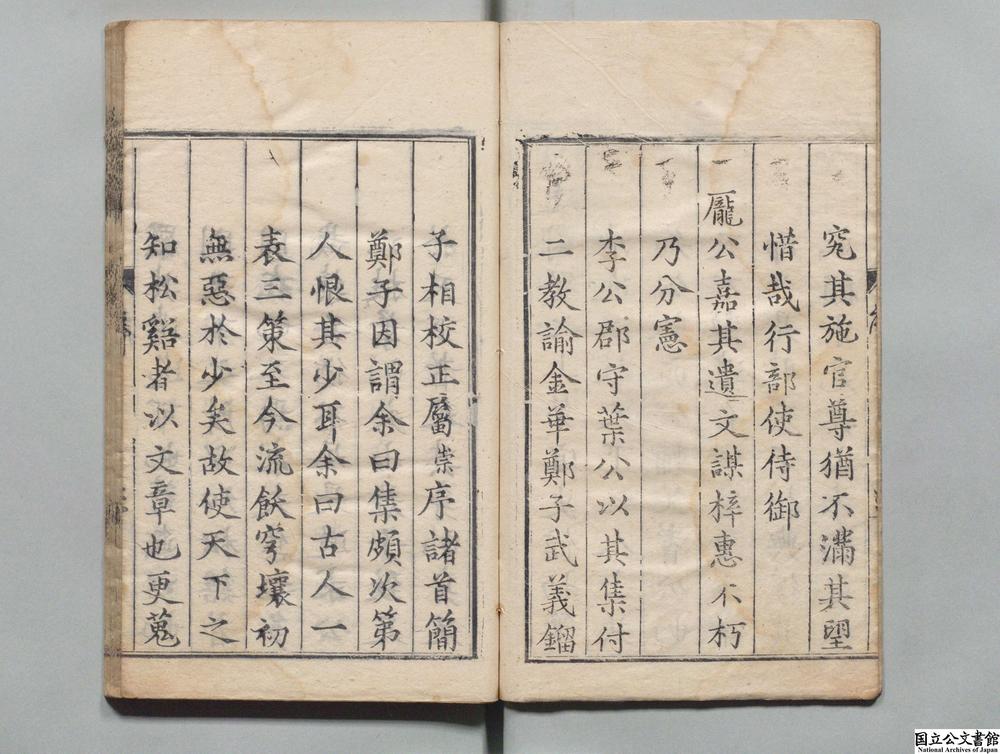 究其施官尊猶不滿其望
惜哉行部使侍御
龐公嘉其遺文謀梓惠不朽
乃分憲
李公郡守葉公以其集付
二教諭金華鄭子武義鎦
子相校正屬崇序諸首簡
鄭子因謂余曰集頗次第
人恨其少耳余曰古人一
表三策至今流飫穹壤初
無惡於少矣故使天下之
知松谿者以文章也更蒐
国立公文書館
National Archives of Japan